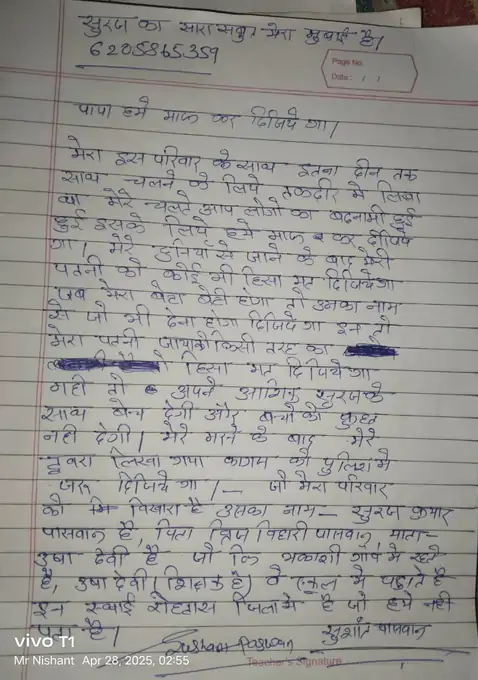 सुरज का सारा सबुत मेरा मुबाईल है।
6205865359
Page No.
Date : / /
पापा हमे माफ कर दिजिये गा।
मेरा इस परिवार के साथ इतना दीन तक
साथ चलने के लिये तकदीर मे लिखा
था मेरे चलते आप लोगो का बदनामी हुई
हुई इसके लिये हमे माफ कर दीजिये
गा। मेरे दुनिया से जाने के बाद मेरी
पतनी को कोई भी हिसा मत दिजियेगा
जब मेरा बेटा बेटी होगा तो उनका नाम
से जो भी देना होगा दिजिये गा इन तो
मेरा पतनी किसी तरह का
हिसा मत दिजिये गा
नही तो अपने आशिक सुरज के
साथ बेच देगी और बच्चो को कुछ
नही देगी। मेरे मरने के बाद मेरे
द्वारा लिखा गया कागज को पुलिस मे
जरुर दिजिये गा। – जो मेरा परिवार
को बिखारा है उसका नाम – सुरज कुमार
पासवान है, पिता बिहारी पासवान, माता-
उषा देवी है जो कि गाँव मे रहते
है, उषा देवी (शिक्षक है) वे स्कूल मे पढ़ाते है
इन रोहतास जिला मे है जो हमे नही
पता है।
सुशांत पासवान
Teacher's Signature
vivo T1
Mr Nishant Apr 28, 2025, 02:55